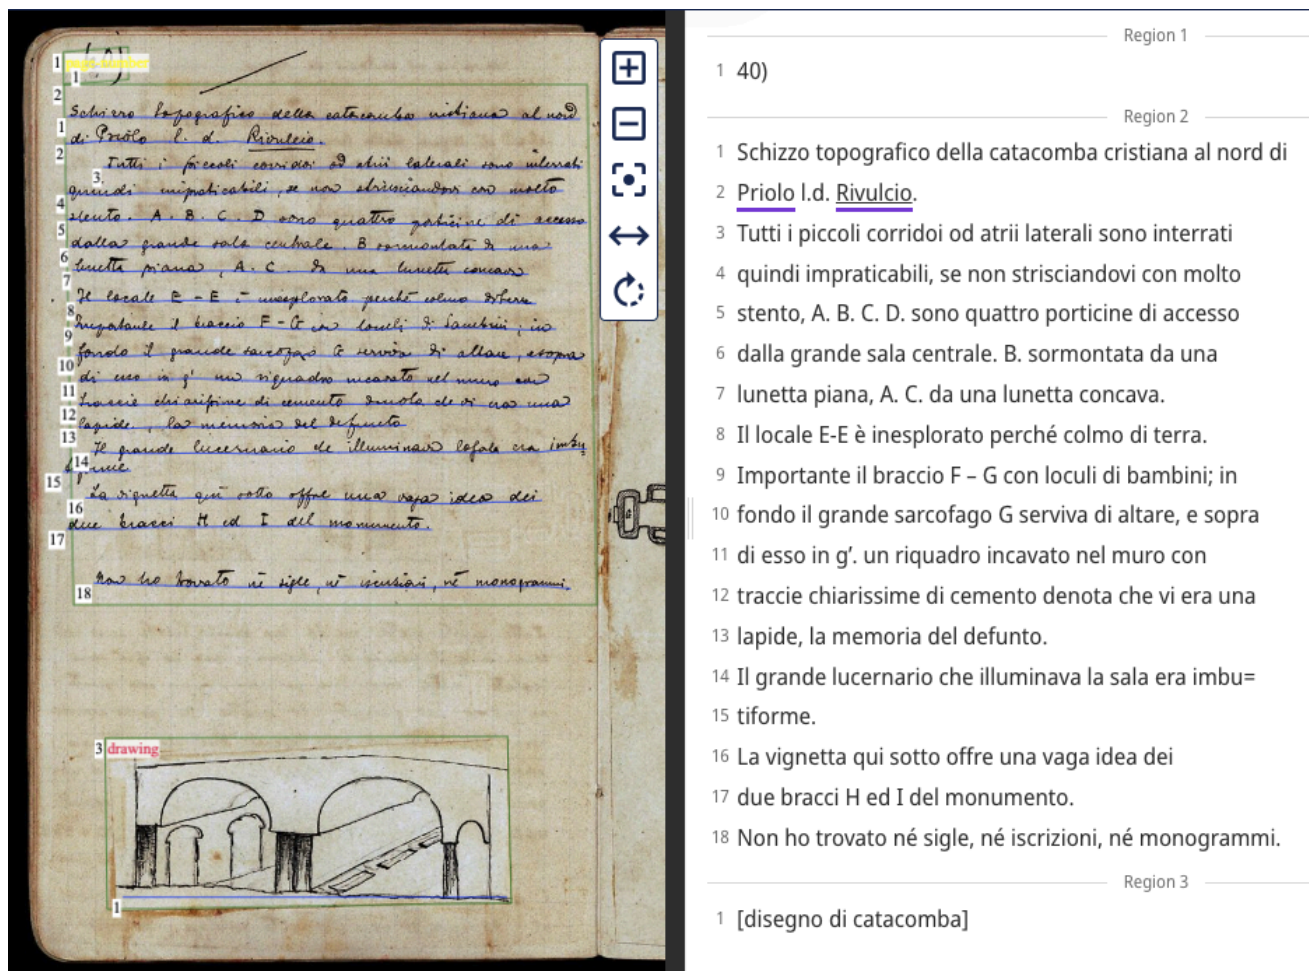 1 page-number
40)
Schizzo topografico della catacomba cristiana al nord
di Priolo l. d. Rivulcio.
Tutti i piccoli corridoi od atrii laterali sono interrati
quindi impraticabili, se non strisciandovi con molto
stento. A. B. C. D sono quattro porticine di accesso
dalla grande sala centrale. B sormontata da una
lunetta piana, A. C. da una lunetta concava
Il locale E - E è inesplorato perché colmo di terra
Importante il braccio F - G con loculi di bambini; in
fondo il grande sarcofago G serviva di altare, e sopra
di esso in g' un riquadro incavato nel muro con
traccie chiarissime di cemento denota che vi era una
lapide, la memoria del defunto
Il grande lucernario che illuminava la sala era imbu=
tiforme.
La vignetta quì sotto offre una vaga idea dei
due bracci H ed I del monumento.
Non ho trovato né sigle, né iscrizioni, né monogrammi.
3 drawing
1
Region 1
1 40)
Region 2
1 Schizzo topografico della catacomba cristiana al nord di
2 Priolo l.d. Rivulcio.
3 Tutti i piccoli corridoi od atrii laterali sono interrati
4 quindi impraticabili, se non strisciandovi con molto
5 stento, A. B. C. D. sono quattro porticine di accesso
6 dalla grande sala centrale. B. sormontata da una
7 lunetta piana, A. C. da una lunetta concava.
8 Il locale E-E è inesplorato perché colmo di terra.
9 Importante il braccio F – G con loculi di bambini; in
10 fondo il grande sarcofago G serviva di altare, e sopra
11 di esso in g’. un riquadro incavato nel muro con
12 traccie chiarissime di cemento denota che vi era una
13 lapide, la memoria del defunto.
14 Il grande lucernario che illuminava la sala era imbu=
15 tiforme.
16 La vignetta qui sotto offre una vaga idea dei
17 due bracci H ed I del monumento.
18 Non ho trovato né sigle, né iscrizioni, né monogrammi.
Region 3
1 [disegno di catacomba]